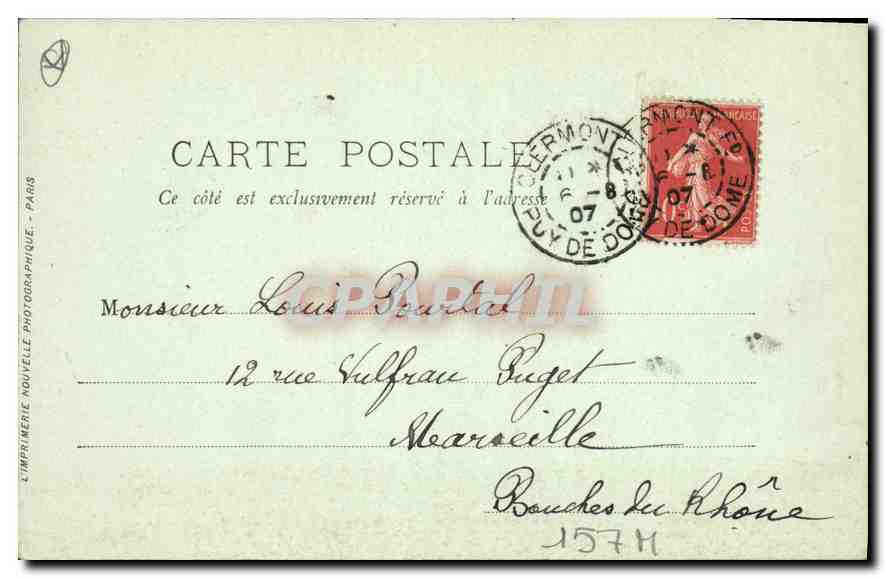 CARTE POSTALE
Ce côté est exclusivement réservé à l'adresse
CLERMONT
11 *
6 - 8
07
PUY DE DOME
CLERMONT-FD
11 *
6 - 8
07
PUY DE DOME
Monsieur Louis Pourtal
CPAPHIL
12 rue Vulfran Puget
Marseille
Bouches du Rhône
157M
L'IMPRIMERIE NOUVELLE PHOTOGRAPHIQUE. - PARIS